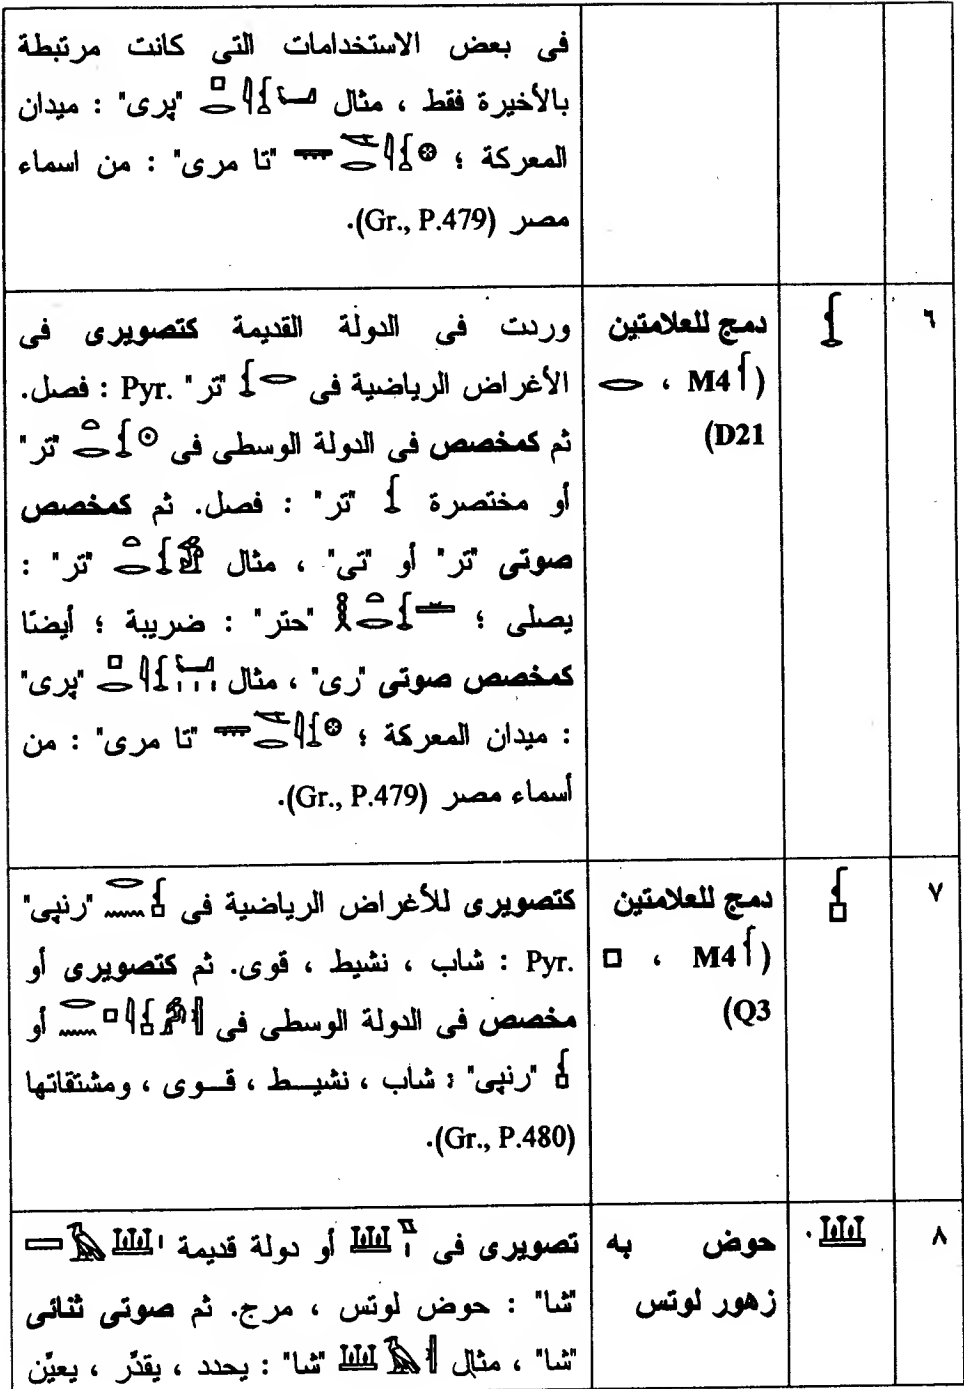 فى بعض الاستخدامات التى كانت مرتبطة
بالأخيرة فقط ، مثال "پرى" : ميدان
المعركة ؛ "تا مرى" : من اسماء
مصر (Gr., P.479).
٦
دمج للعلامتين
(M4 ،
D21)
وردت فى الدولة القديمة كتصويرى فى
الأغراض الرياضية فى "تر" Pyr. : فصل.
ثم كمخصص فى الدولة الوسطى فى "تر"
أو مختصرة "تر" : فصل. ثم كمخصص
صوتى "تر" أو "تى" ، مثال "تر" :
يصلى ؛ "حتر" : ضريبة ؛ أيضتا
كمخصص صوتى "رى" ، مثال "پرى"
: ميدان المعركة ؛ "تا مرى" : من
أسماء مصر (Gr., P.479).
٧
دمج للعلامتين
(M4 ،
Q3)
كتصويرى للأغراض الرياضية فى "رنپى"
Pyr. : شاب ، نشيط ، قوى. ثم كتصويرى أو
مخصص فى الدولة الوسطى فى أو
"رنپى" : شاب ، نشيـط ، قـوى ، ومشتقاتها
(Gr., P.480).
٨
حوض به
زهور لوتس
تصويرى فى أو دولة قديمة
"شا" : حوض لوتس ، مرج. ثم صوتى ثنائى
"شا" ، مثال "شا" : يحدد ، يقدَّر ، يعيَّن